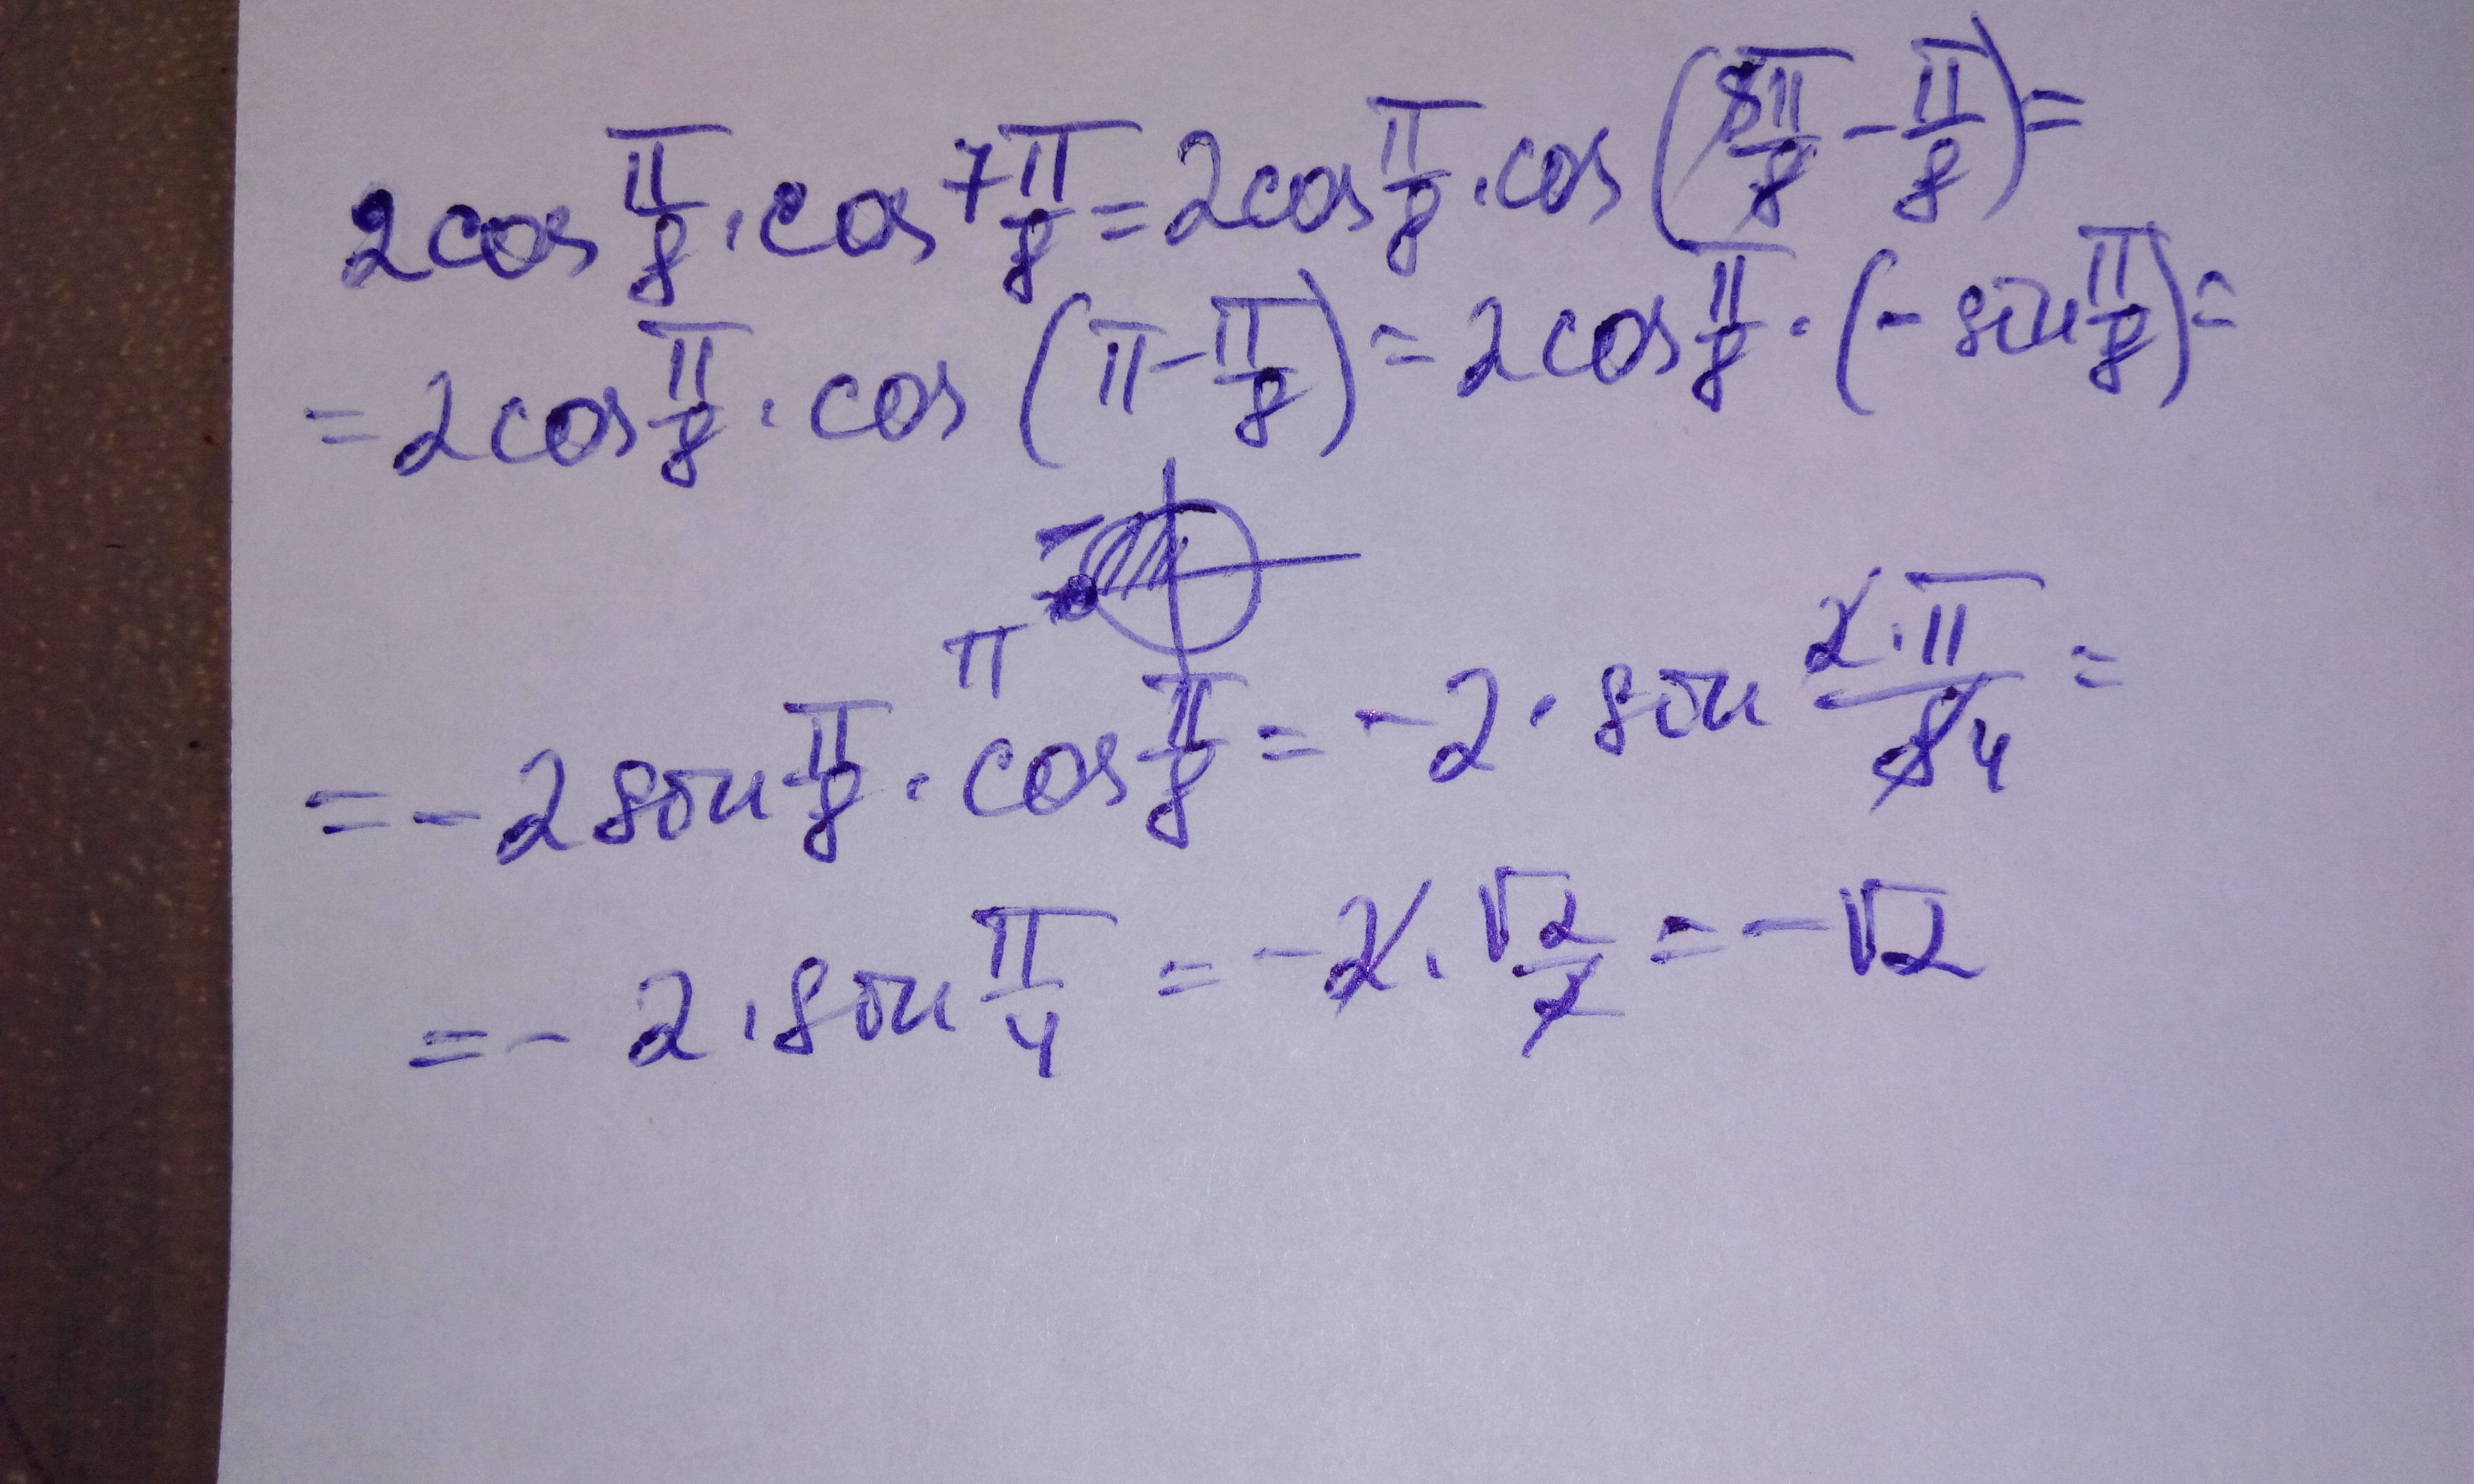 2cos π/8 · cos 7π/8 = 2cos π/8 · cos (8π/8 - π/8) =
= 2cos π/8 · cos (π - π/8) = 2cos π/8 · (- sin π/8) =
π
= - 2 sin π/8 · cos π/8 = - 2 · sin 2·π/8 4 =
= - 2 · sin π/4 = - 2 · √2/2 = - √2